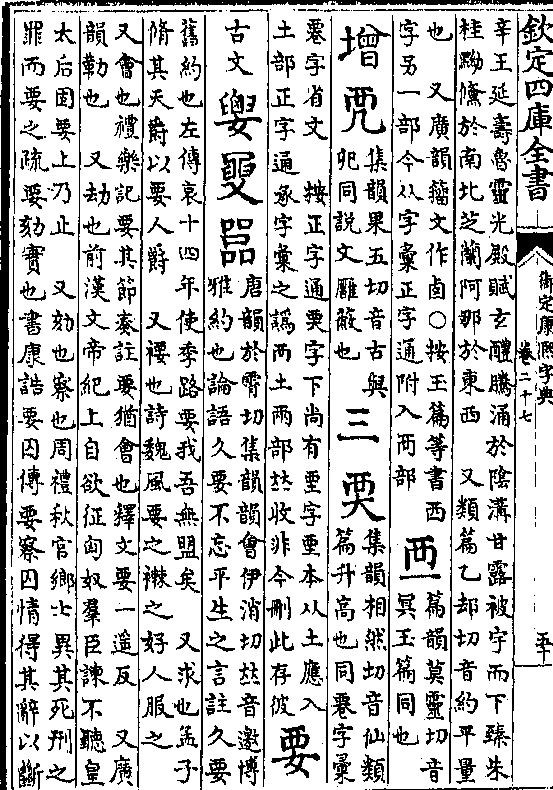 欽定四庫全書
御定康熙字典
卷二十七
五十
辛王延壽魯靈光殿賦玄醴騰涌於陰溝甘露被宇而下臻朱
桂黝儵於南北芝蘭阿那於東西 又類篇乙却切音約平量
也 又廣韻籀文作卤○按玉篇等書西
字另一部今从字彙正字通附入襾部
篇韻莫靈切音
冥玉篇同也
增
集韻果五切音古與
同說文廱蔽也
三
集韻相然切音仙類
篇升高也同䙴字彙
䙴字省文 按正字通覂字下尚有垔字垔本从土應入
土部正字通承字彙之譌西土兩部𠀤收非今刪此存彼
要
古文
唐韻於霄切集韻韻會伊消切𠀤音邀博
雅約也論語久要不忘平生之言註久要
舊約也左傳哀十四年使季路要我吾無盟矣 又求也孟子
脩其天爵以要人爵 又褸也詩魏風要之襋之好人服之
又會也禮樂記要其節奏註要猶會也釋文要一遙反 又廣
韻勒也 又劫也前漢文帝紀上自欲征匈奴羣臣諫不聽皇
太后固要上乃止 又劾也察也周禮秋官鄉士異其死刑之
罪而要之疏要劾實也書康誥要囚傳要察囚情得其辭以斷